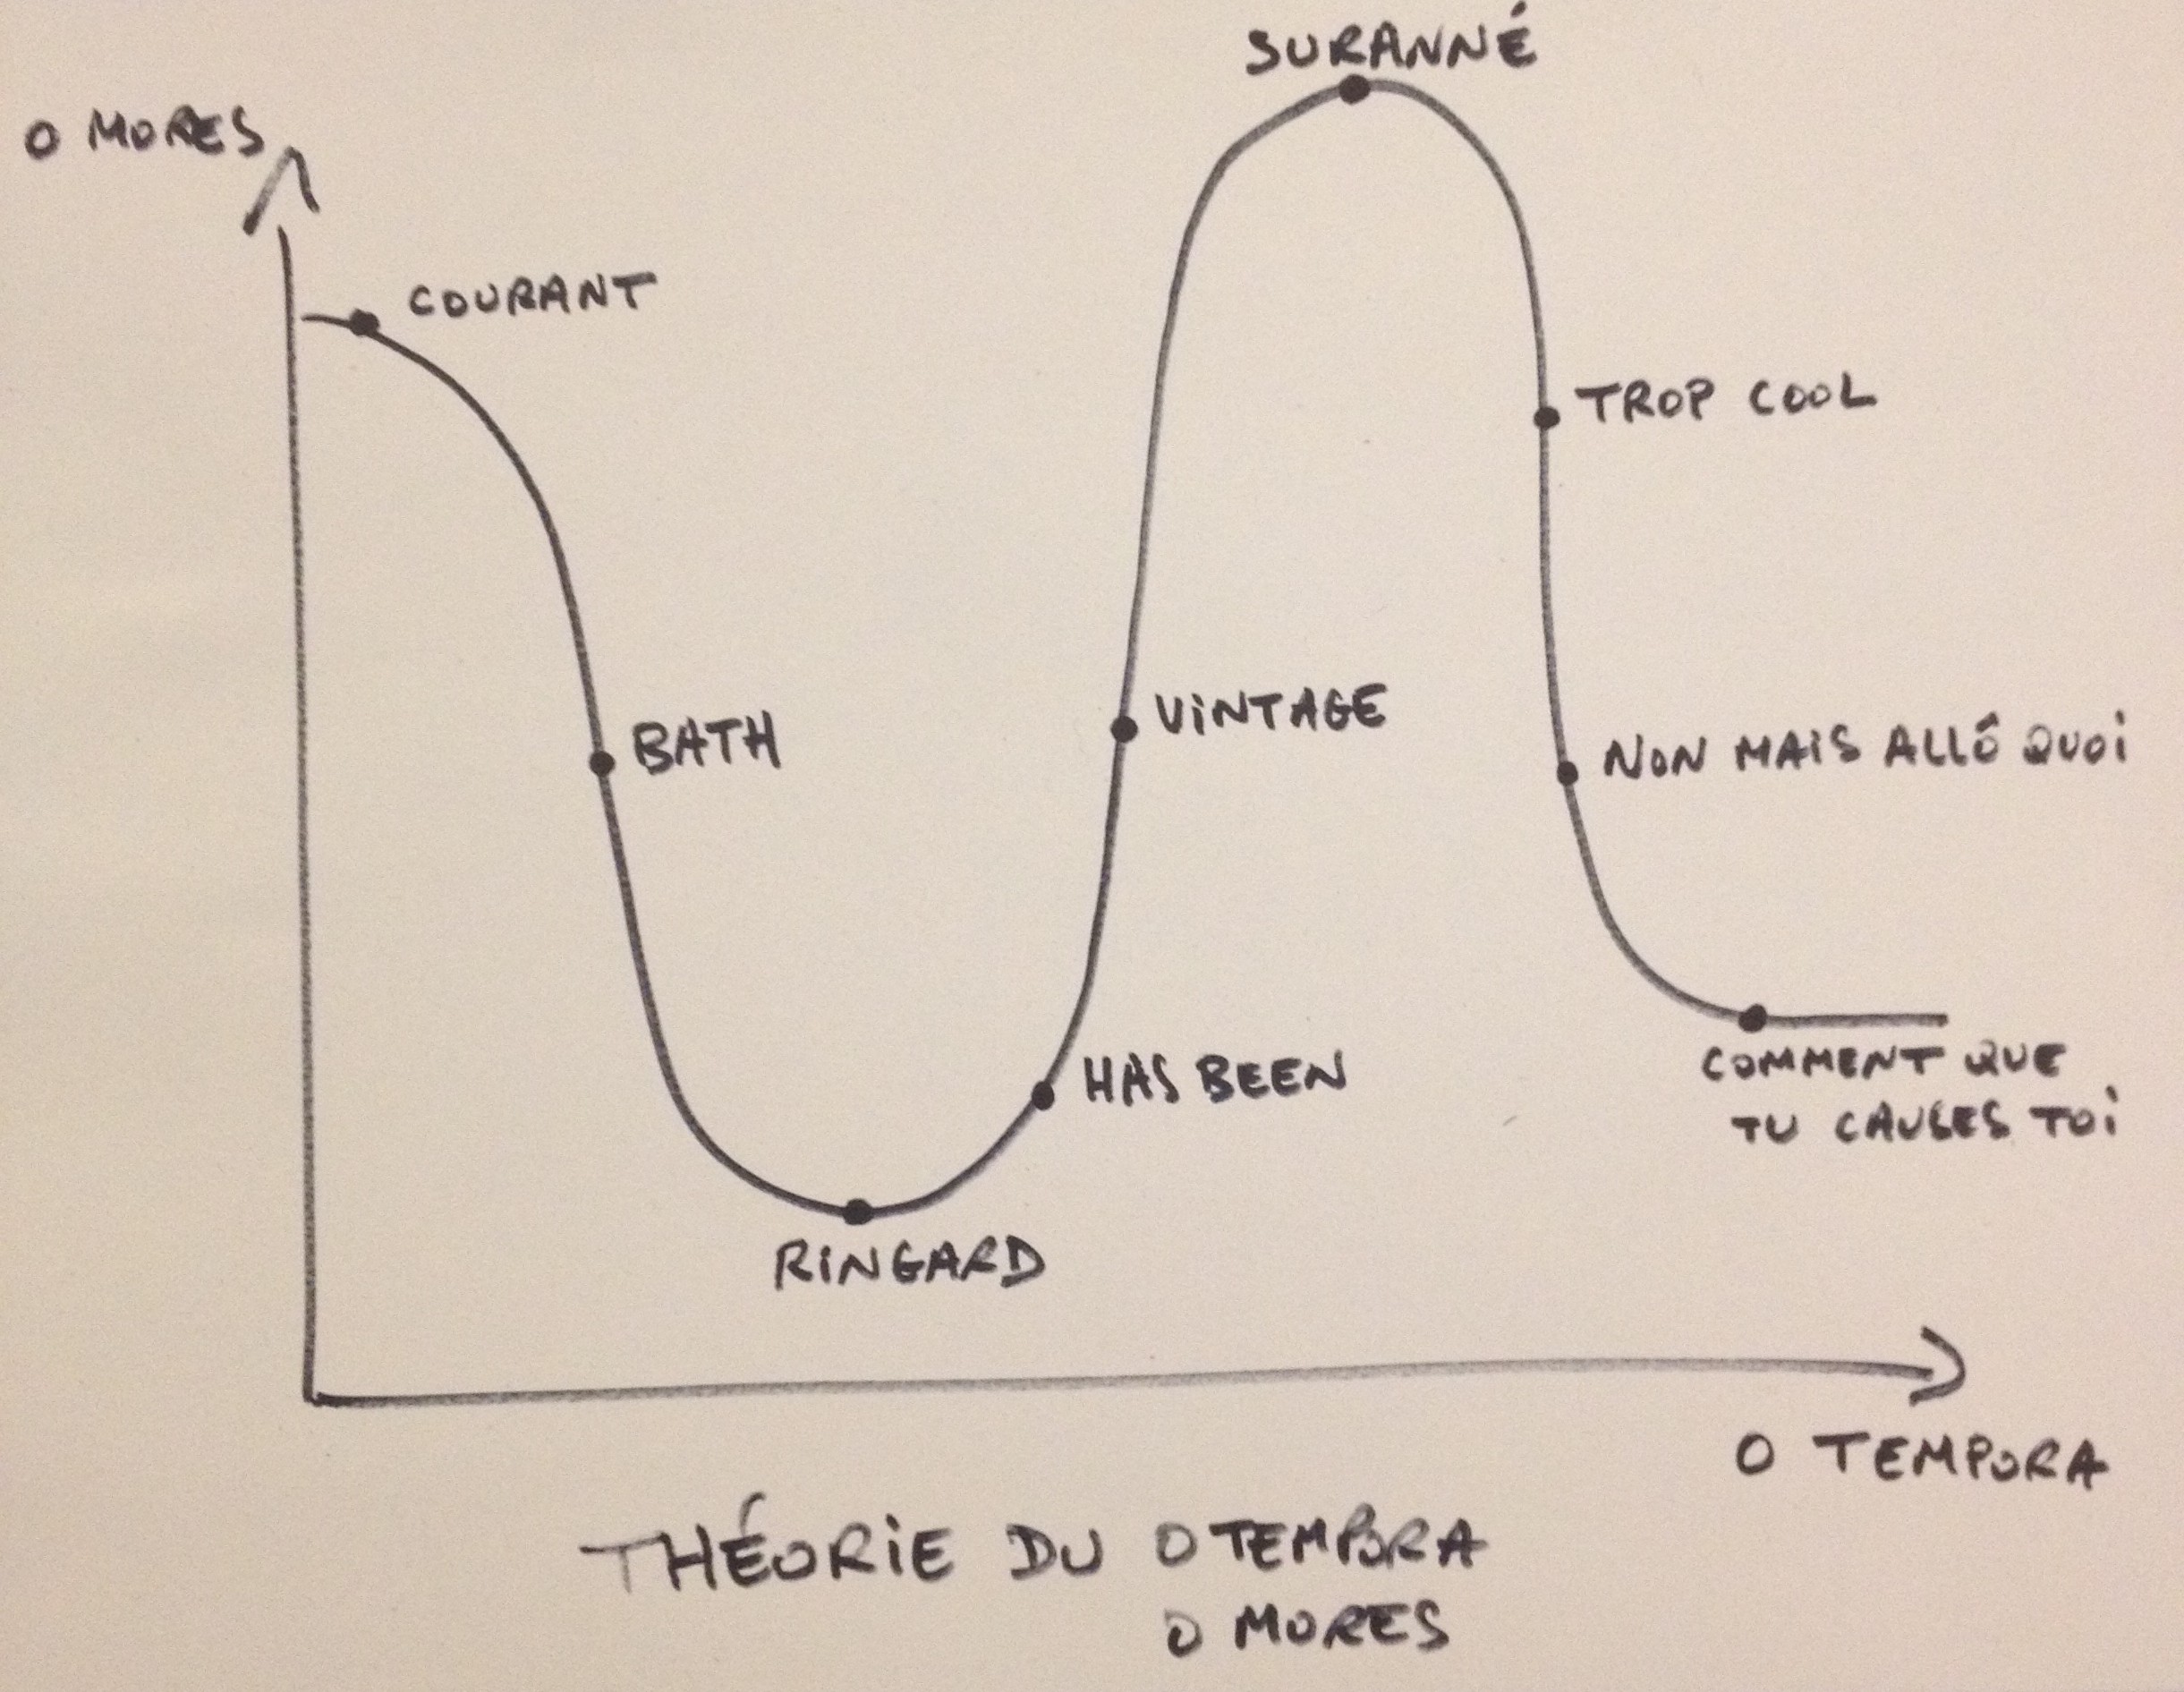 SURANNÉ
O MORES
COURANT
TROP COOL
BATH
VINTAGE
NON MAIS ALLÔ QUOI
HAS BEEN
COMMENT QUE
TU CAUSES TOI
RINGARD
O TEMPORA
THÉORIE DU O TEMPORA
O MORES